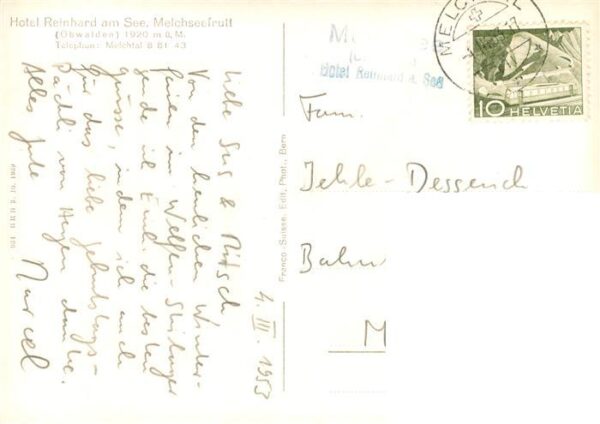 Hotel Reinhard am See, Melchseefrutt
(Obwalden) 1920 m ü. M.
Telephon: Melchtal 8 61 43
Liebe Sus &
Von den herrlichen Winter-
ferien im
sende ich Euch die besten
Grüsse, indem ich auch
für das liebe Geburtstags-
Päckli von Herzen danke.
Alles Gute
Marcel
4. III. 1953
Franco-Suisse, Edit. Phot., Bern
Hotel Reinhard a. See
MELCHTAL
10 HELVETIA
Fam.
Jehle-Desserich
Bahn
M